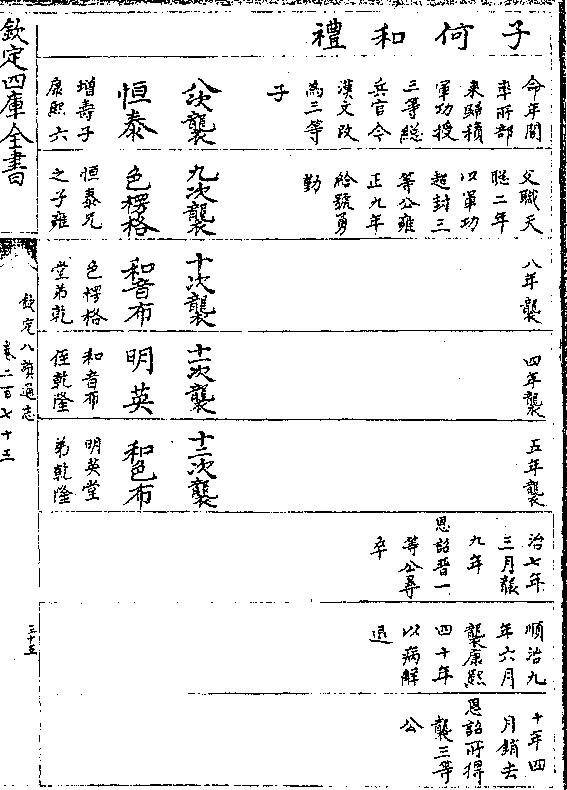 子何和禮
令年間
率所部
来歸積
軍功授
三等總
兵官今
漢文改
為三等
子
八次襲
恒泰
增壽子
康熙六
父職天
聰二年
以軍功
超封三
等公雍
正九年
給號勇
勤
九次襲
色楞格
恒泰兄
之子雍
八年襲
十次襲
和音布
色楞格
堂弟乾
四年襲
十一次襲
明英
和音布
侄乾隆
五年襲
十二次襲
和色布
明英堂
弟乾隆
治七年
三月襲
九年
恩詔晋一
等公尋
卒
順治九
年六月
襲康熙
四十年
以病解
退
十年四
月銷去
恩詔所得
襲三等
公
欽定四庫全書
欽定八旗通志
卷二百七十三
三十五